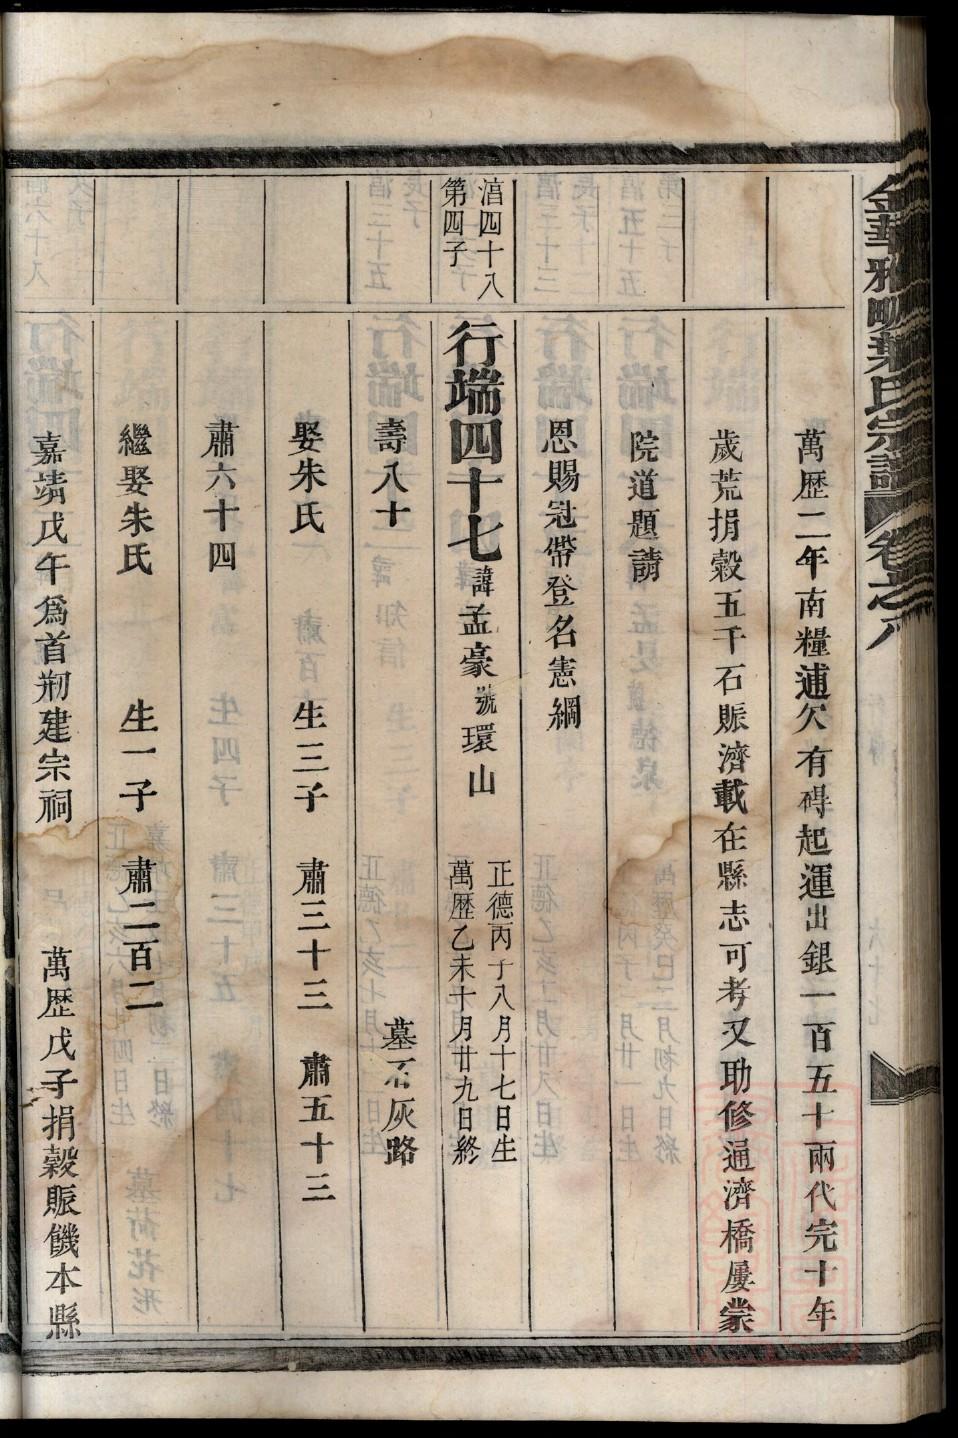 金華雅畈葉氏宗譜 卷之八
萬歷二年南糧逋欠有碍起運出銀一百五十兩代完十年
歲荒捐穀五千石賑濟載在縣志可考又助修通濟橋屢蒙
院道題請
恩賜冠帶登名憲綱
湻四十八
第四子
行端四十七 諱孟豪 號環山
正德丙子八月十七日生
萬歷乙未十月廿九日終
壽八十 墓石灰路
娶朱氏 生三子 肅三十三 肅五十三
肅六十四
繼娶朱氏 生一子 肅二百二
嘉靖戊午為首剏建宗祠 萬歷戊子捐穀賑饑本縣